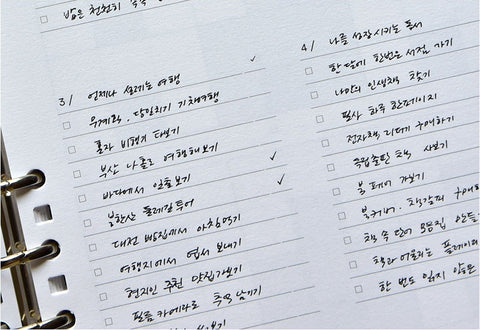 밥은 천천히
3/ 언제나 설레는 여행
무계획, 당일치기 기차여행
혼자 비행기 타보기
부산 나홀로 여행해보기
바다에서 일출보기
북한산 둘레길투어
대전 빵집에서 아침먹기
여행지에서 엽서 보내기
현지인 추천 맛집가보기
필름카메라로 추억 남기기
보기
4/ 나를 성장시키는 독서
한 달에 한번은 서점 가기
나만의 인생책 찾기
필사 하루 한페이지
전자책 리더기 구매하기
독립출판 책 사보기
북 페어 가보기
북커버, 책갈피 구매
책 속 단어 모음집 만들
책과 어울리는 플레이
한 번도 읽지 않은